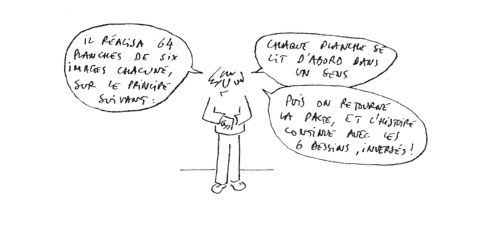 IL RÉALISA 64
PLANCHES DE SIX
IMAGES CHACUNE,
SUR LE PRINCIPE
SUIVANT :
CHAQUE PLANCHE SE
LIT D'ABORD DANS
UN SENS
PUIS ON RETOURNE
LA PAGE, ET L'HISTOIRE
CONTINUE AVEC LES
6 DESSINS, INVERSÉS !